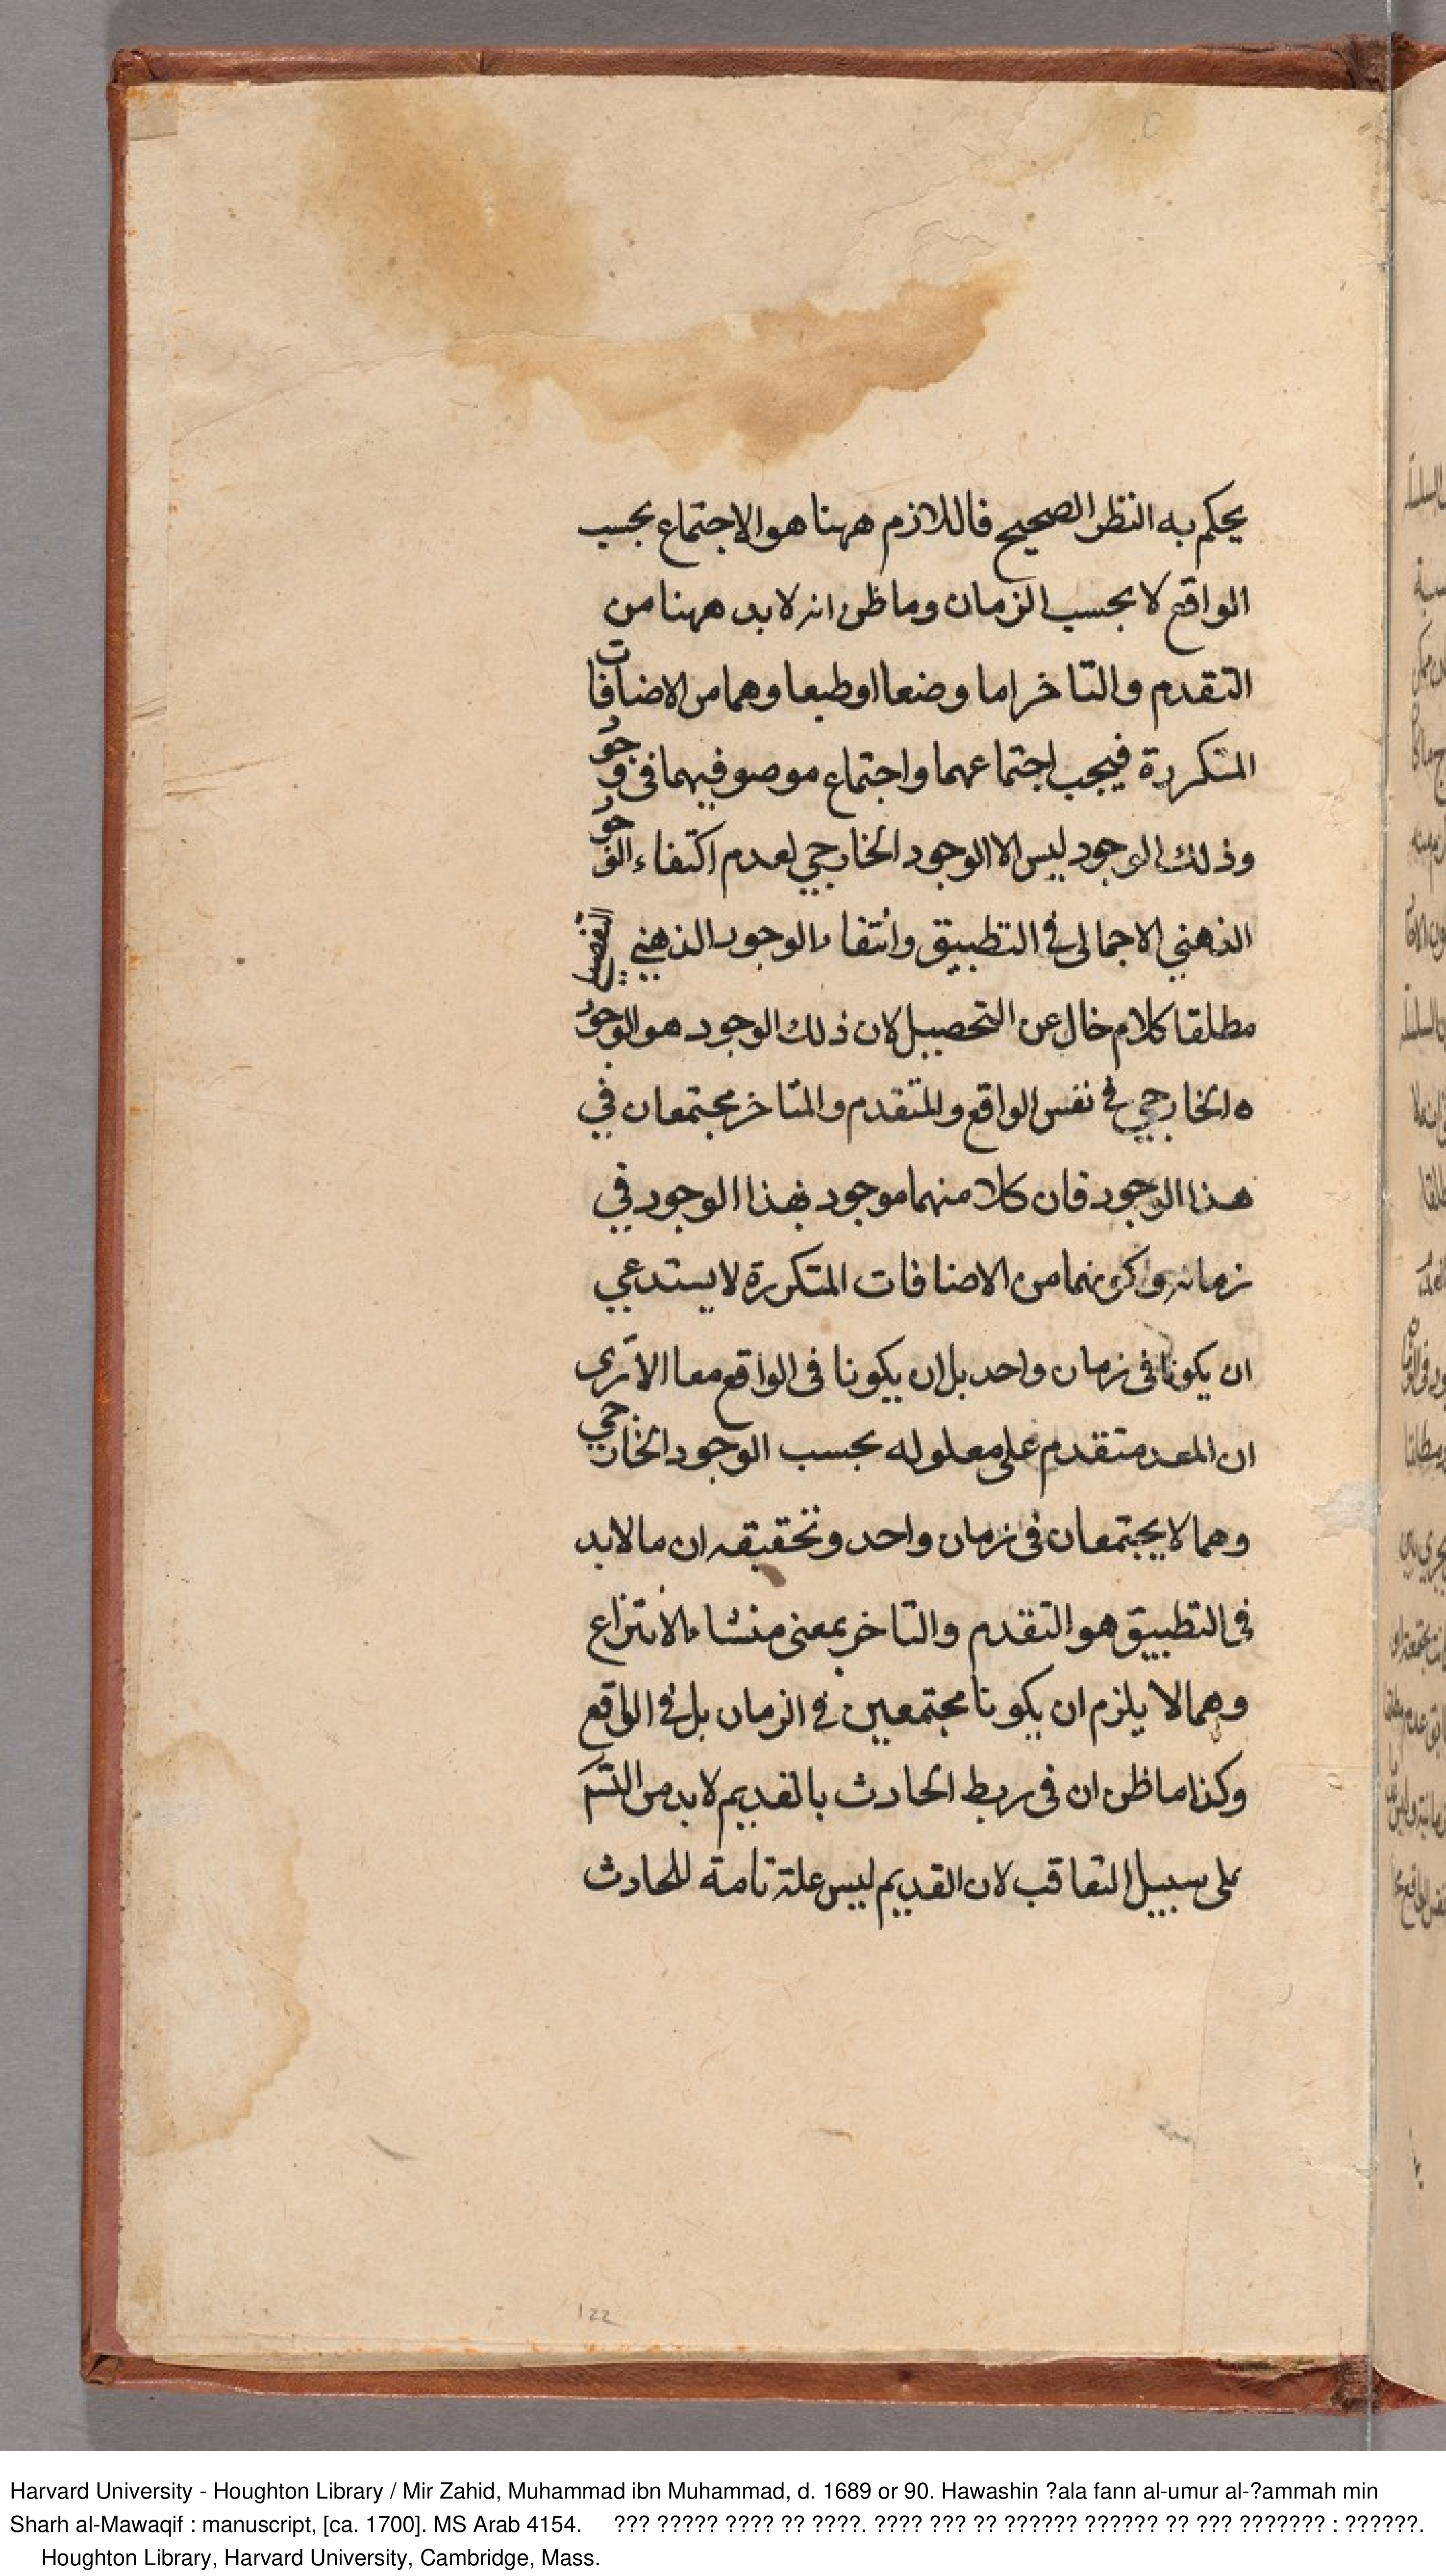 يحكم به النظر الصحيح فاللازم ههنا هو الاجتماع بحسب
الواقع لا بحسب الزمان وما ظن انه لا بد ههنا من
التقدم والتاخر اما وضعا او طبعا وهما من الاضافات
المتكررة فيجب اجتماعهما واجتماع موصوفيهما في وجود
وذلك الوجود ليس الا الوجود الخارجي لعدم اكتفاء الوجود
الذهني الاجمالي في التطبيق وانتفاء الوجود الذهني التفصيلي
مطلقا كلام خال عن التحصيل لان ذلك الوجود هو الوجود
ه الخارجي في نفس الواقع والمتقدم والمتاخر مجتمعان في
هذا الوجود فان كلا منهما موجود بهذا الوجود في
زمانه وكونهما من الاضافات المتكررة لا يستدعي
ان يكونا في زمان واحد بل ان يكونا في الواقع معا الا ترى
ان المعد متقدم على معلوله بحسب الوجود الخارجي
وهما لا يجتمعان في زمان واحد وتحقيقه ان ما لا بد
في التطبيق هو التقدم والتاخر بمعنى منشاء الانتزاع
وهما لا يلزم ان يكونا مجتمعين في الزمان بل في الواقع
وكذا ما ظن ان في ربط الحادث بالقديم لا بد من التسم
على سبيل التعاقب لان القديم ليس علة تامة للحادث
122
Harvard University - Houghton Library / Mir Zahid, Muhammad ibn Muhammad, d. 1689 or 90. Hawashin ?ala fann al-umur al-?ammah min
Sharh al-Mawaqif : manuscript, [ca. 1700]. MS Arab 4154. ??? ????? ???? ?? ????. ???? ??? ?? ?????? ?????? ?? ??? ??????? : ??????.
Houghton Library, Harvard University, Cambridge, Mass.